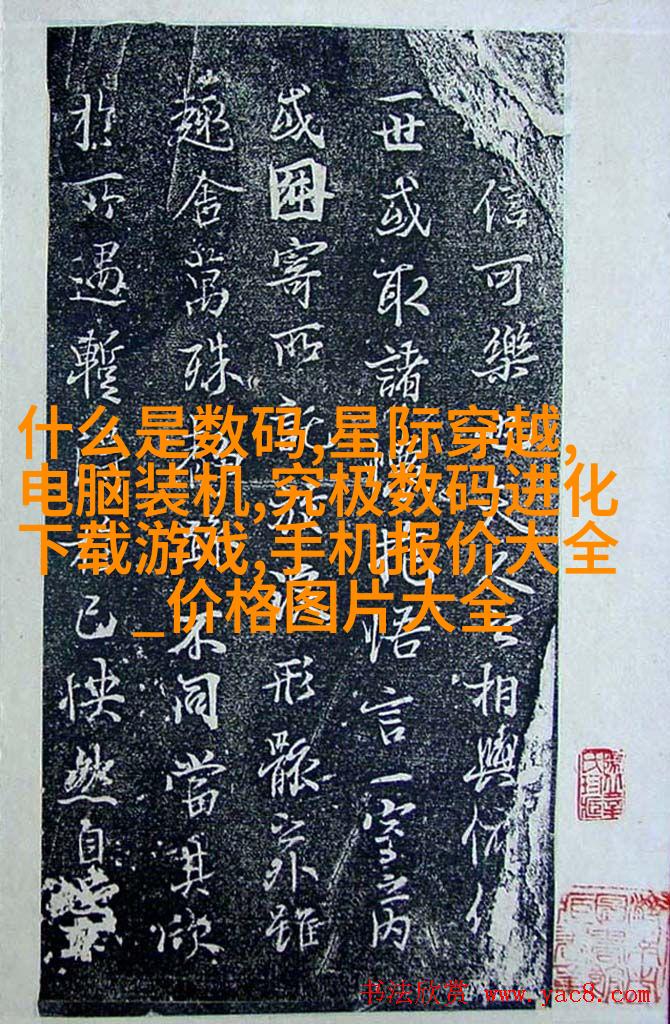 信可樂也夫人之相與俯仰
一世或取諸懷抱悟言一室之内
或因寄所託放浪形骸之外雖
趣舍萬殊靜躁不同當其欣
於所遇暫得於己怏然自
什么是数码,星际穿越,
电脑装机,究极数码进化
下载游戏,手机报价大全
_价格图片大全
书法欣赏 www.yac8.com